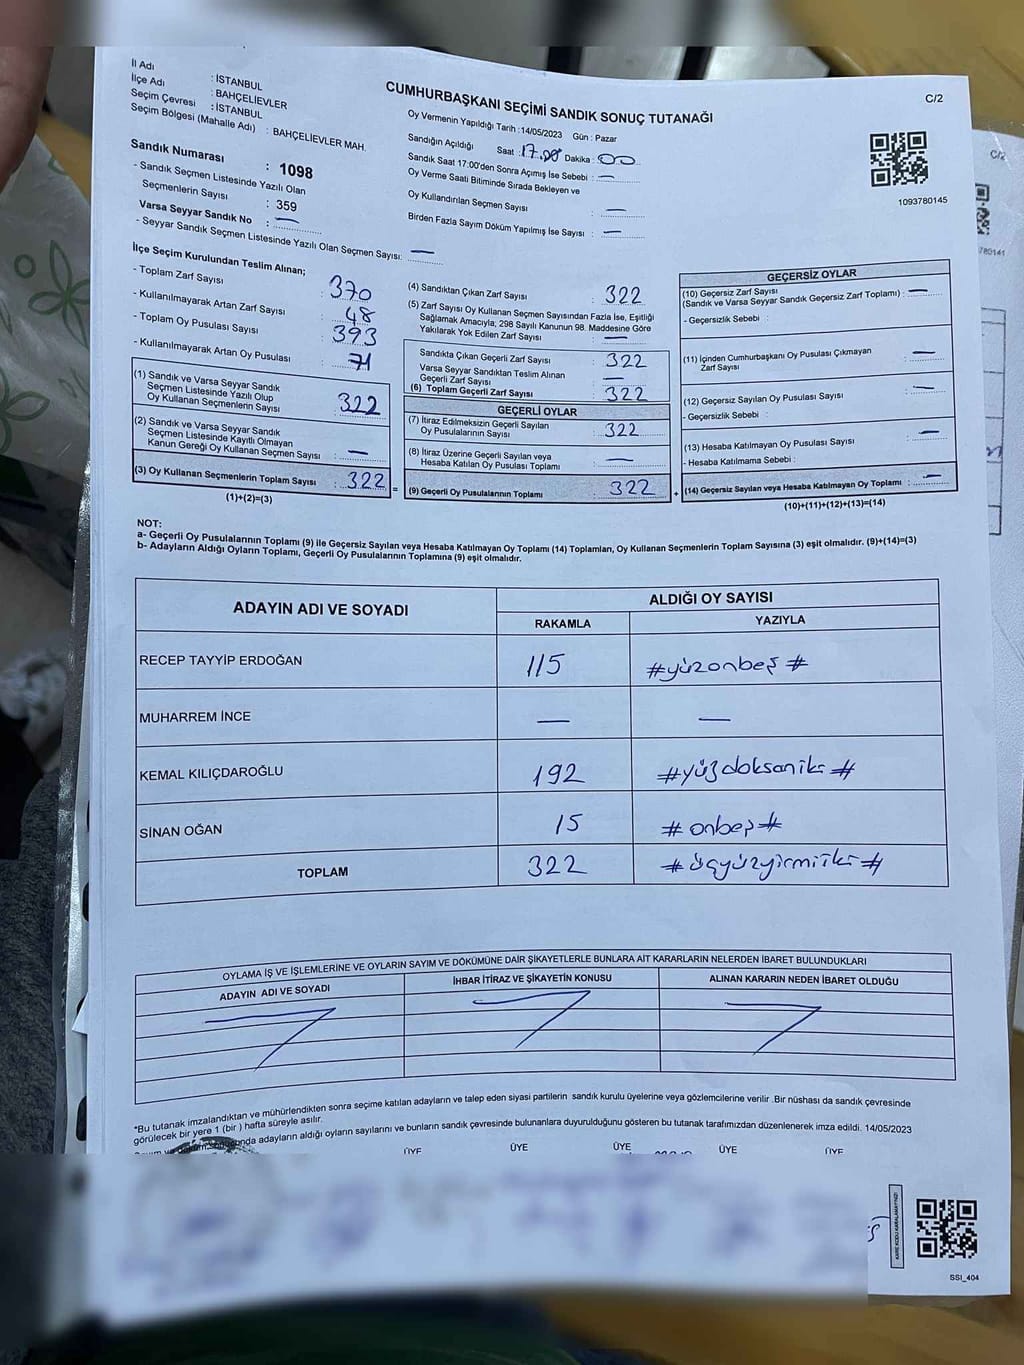 İl Adı : İSTANBUL
İlçe Adı : BAHÇELİEVLER
Seçim Çevresi : İSTANBUL
Seçim Bölgesi (Mahalle Adı) : BAHÇELİEVLER MAH.
Sandık Numarası : 1098
- Sandık Seçmen Listesinde Yazılı Olan
Seçmenlerin Sayısı : 359
Varsa Seyyar Sandık No : —
- Seyyar Sandık Seçmen Listesinde Yazılı Olan Seçmen Sayısı: —
CUMHURBAŞKANI SEÇİMİ SANDIK SONUÇ TUTANAĞI
Oy Vermenin Yapıldığı Tarih :14/05/2023 Gün : Pazar
Sandığın Açıldığı Saat :17.00 Dakika : 00
Sandık Saat 17:00'den Sonra Açımış İse Sebebi : —
Oy Verme Saati Bitiminde Sırada Bekleyen ve
Oy Kullandırılan Seçmen Sayısı : —
Birden Fazla Sayım Döküm Yapılmış İse Sayısı : —
C/2
1093780145
İlçe Seçim Kurulundan Teslim Alınan;
- Toplam Zarf Sayısı : 370
- Kullanılmayarak Artan Zarf Sayısı : 48
- Toplam Oy Pusulası Sayısı : 393
- Kullanılmayarak Artan Oy Pusulası : 71
(1) Sandık ve Varsa Seyyar Sandık
Seçmen Listesinde Yazılı Olup
Oy Kullanan Seçmenlerin Sayısı : 322
(2) Sandık ve Varsa Seyyar Sandık
Seçmen Listesinde Kayıtlı Olmayan
Kanun Gereği Oy Kullanan Seçmen Sayısı : —
(3) Oy Kullanan Seçmenlerin Toplam Sayısı : 322 =
(1)+(2)=(3)
(4) Sandıktan Çıkan Zarf Sayısı : 322
(5) Zarf Sayısı Oy Kullanan Seçmen Sayısından Fazla İse, Eşitliği
Sağlamak Amacıyla, 298 Sayılı Kanunun 98. Maddesine Göre
Yakılarak Yok Edilen Zarf Sayısı : —
Sandıkta Çıkan Geçerli Zarf Sayısı : 322
Varsa Seyyar Sandıktan Teslim Alınan
Geçerli Zarf Sayısı : —
(6) Toplam Geçerli Zarf Sayısı : 322
GEÇERLİ OYLAR
(7) İtiraz Edilmeksizin Geçerli Sayılan
Oy Pusulalarının Sayısı : 322
(8) İtiraz Üzerine Geçerli Sayılan veya
Hesaba Katılan Oy Pusulası Toplamı : —
(9) Geçerli Oy Pusulalarının Toplamı : 322 +
GEÇERSİZ OYLAR
(10) Geçersiz Zarf Sayısı
(Sandık ve Varsa Seyyar Sandık Geçersiz Zarf Toplamı) : —
- Geçersizlik Sebebi :
(11) İçinden Cumhurbaşkanı Oy Pusulası Çıkmayan
Zarf Sayısı : —
(12) Geçersiz Sayılan Oy Pusulası Sayısı : —
- Geçersizlik Sebebi :
(13) Hesaba Katılmayan Oy Pusulası Sayısı : —
- Hesaba Katılmama Sebebi :
(14) Geçersiz Sayılan veya Hesaba Katılmayan Oy Toplamı : —
(10)+(11)+(12)+(13)=(14)
NOT:
a- Geçerli Oy Pusulalarının Toplamı (9) ile Geçersiz Sayılan veya Hesaba Katılmayan Oy Toplamı (14) Toplamları, Oy Kullanan Seçmenlerin Toplam Sayısına (3) eşit olmalıdır. (9)+(14)=(3)
b- Adayların Aldığı Oyların Toplamı, Geçerli Oy Pusulalarının Toplamına (9) eşit olmalıdır.
ADAYIN ADI VE SOYADI ALDIĞI OY SAYISI
RAKAMLA YAZIYLA
RECEP TAYYİP ERDOĞAN 115 #yüzonbeş#
MUHARREM İNCE — —
KEMAL KILIÇDAROĞLU 192 #yüzdoksaniki#
SİNAN OĞAN 15 #onbeş#
TOPLAM 322 #üçyüzyirmiiki#
OYLAMA İŞ VE İŞLEMLERİNE VE OYLARIN SAYIM VE DÖKÜMÜNE DAİR ŞİKAYETLERLE BUNLARA AİT KARARLARIN NELERDEN İBARET BULUNDUKLARI
ADAYIN ADI VE SOYADI İHBAR İTİRAZ VE ŞİKAYETİN KONUSU ALINAN KARARIN NEDEN İBARET OLDUĞU
*Bu tutanak imzalandıktan ve mühürlendikten sonra seçime katılan adayların ve talep eden siyasi partilerin sandık kurulu üyelerine veya gözlemcilerine verilir .Bir nüshası da sandık çevresinde
görülecek bir yere 1 (bir ) hafta süreyle asılır.
adayların aldığı oyların sayılarını ve bunların sandık çevresinde bulunanlara duyurulduğunu gösteren bu tutanak tarafımızdan düzenlenerek imza edildi. 14/05/2023
ÜYE ÜYE ÜYE ÜYE ÜYE
SSI_404